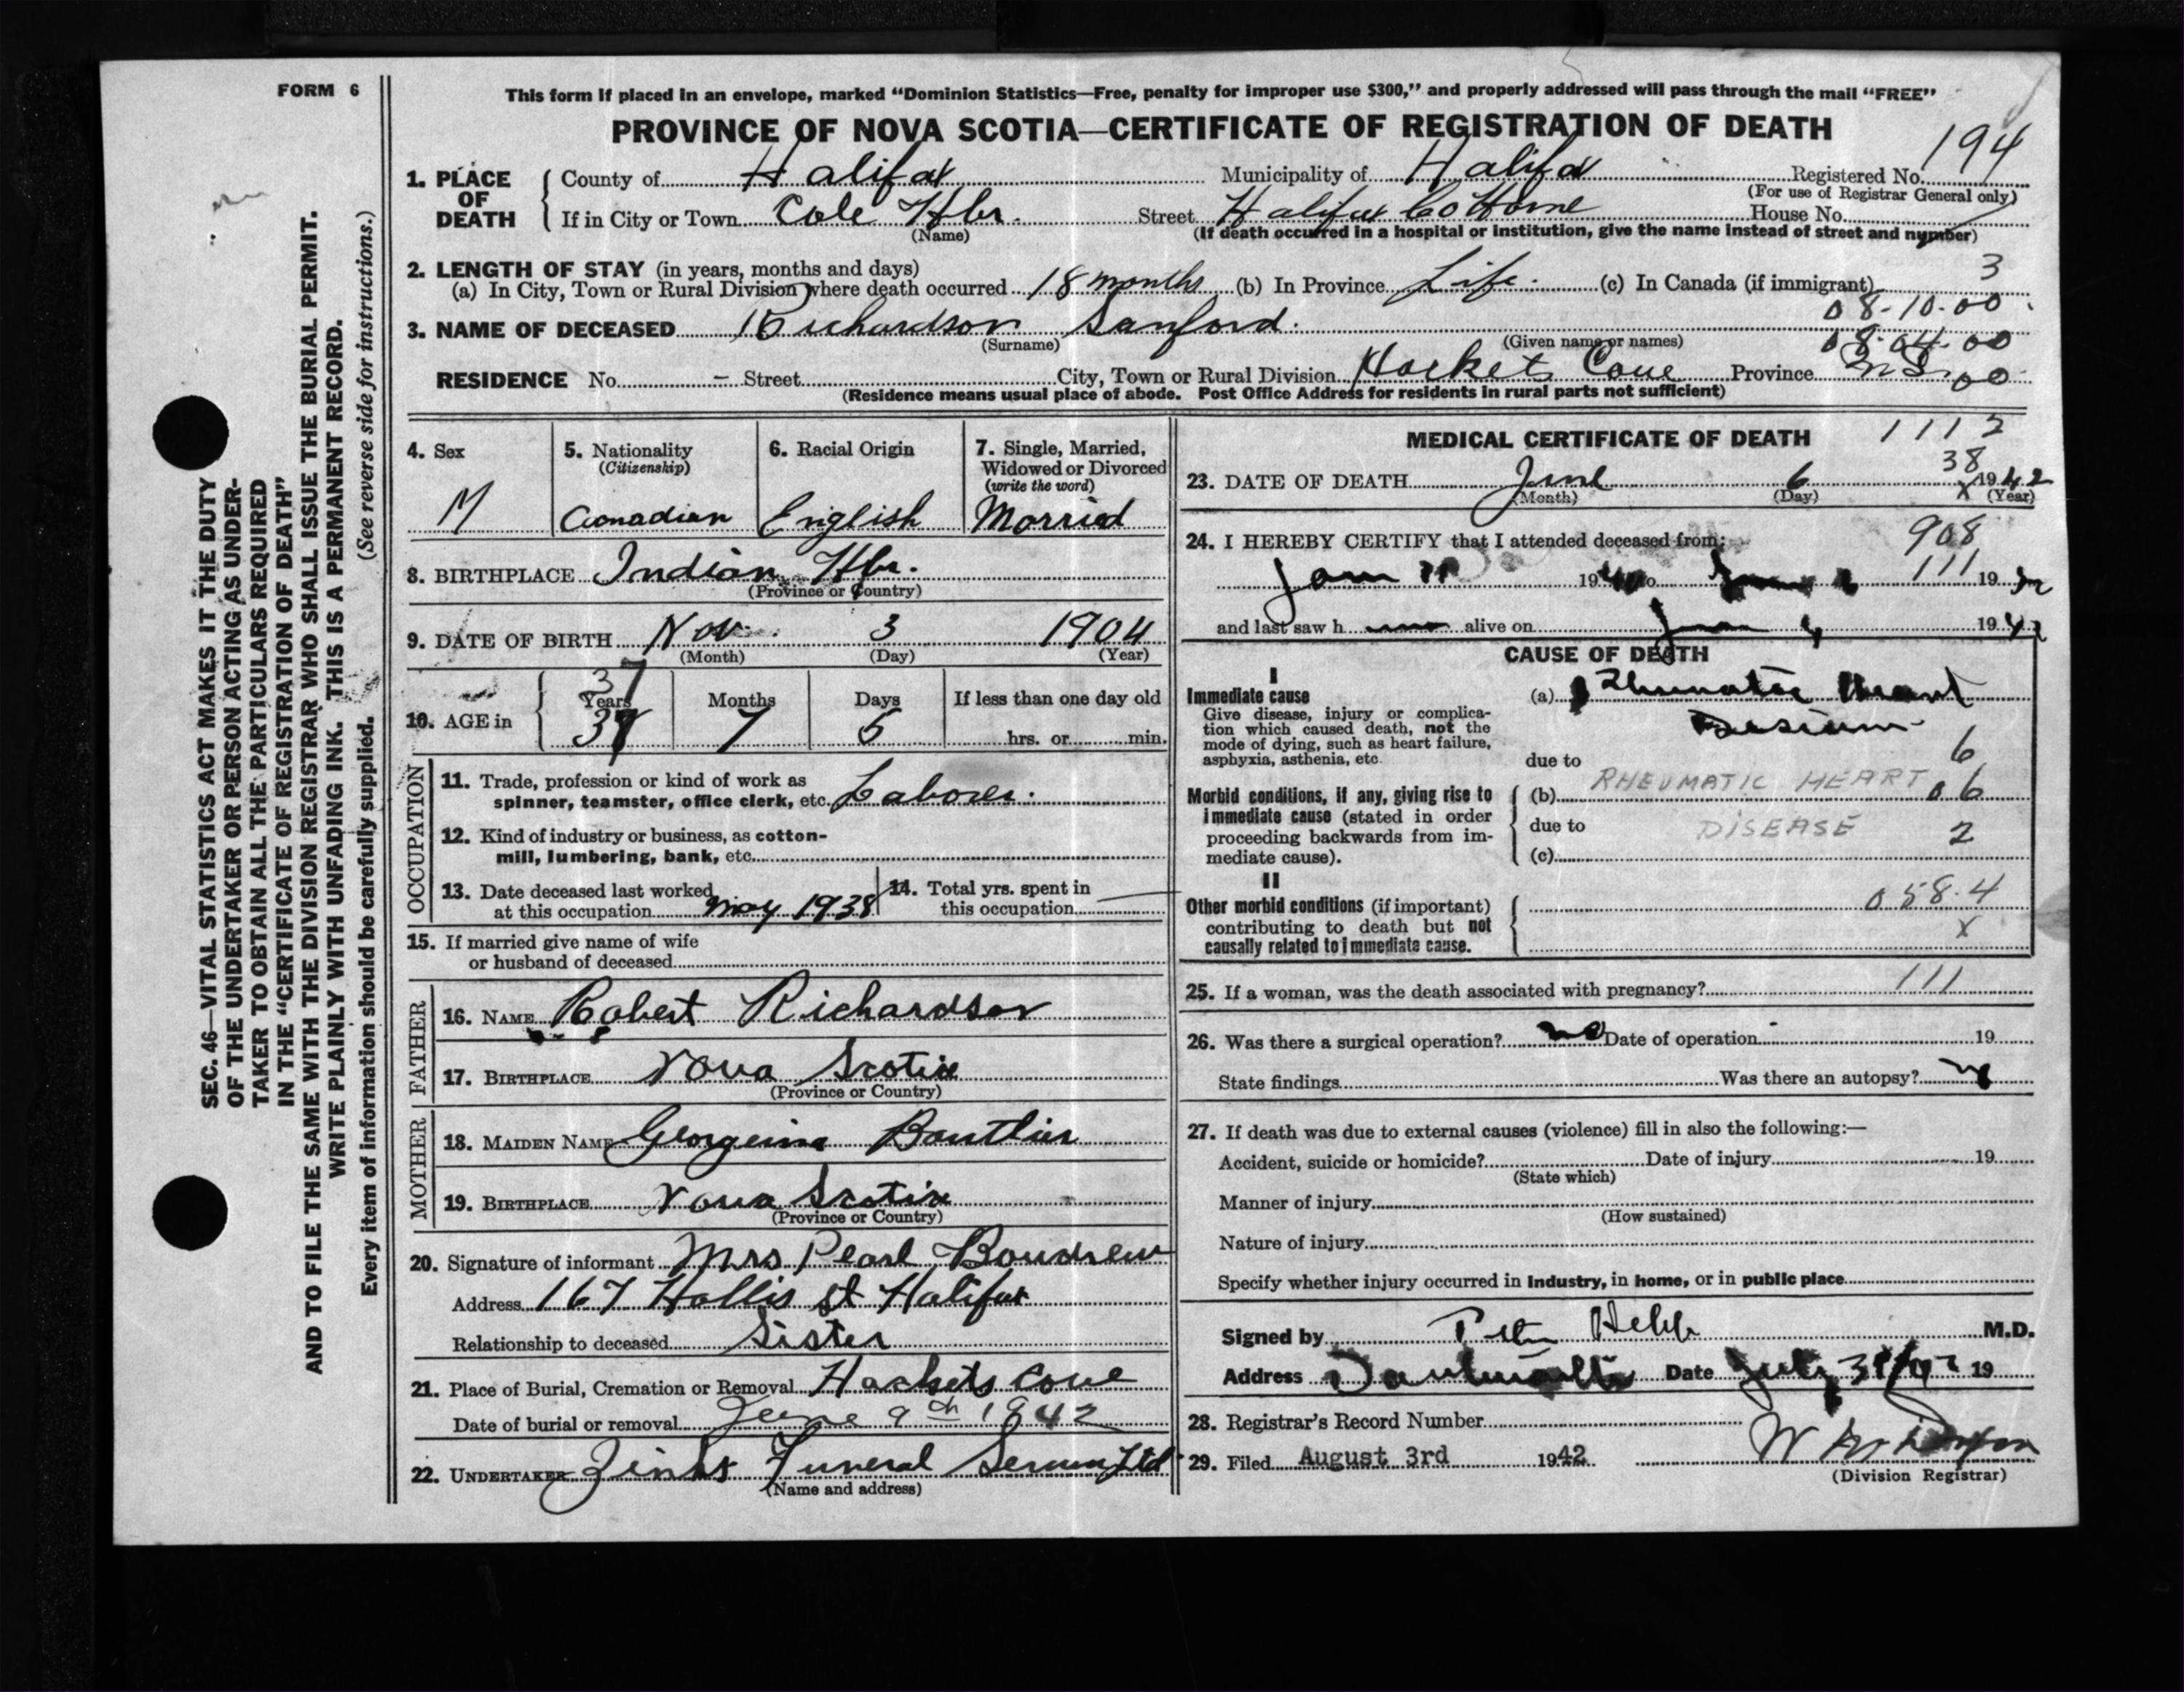 FORM 6
SEC. 46—VITAL STATISTICS ACT MAKES IT THE DUTY
OF THE UNDERTAKER OR PERSON ACTING AS UNDER-
TAKER TO OBTAIN ALL THE PARTICULARS REQUIRED
IN THE "CERTIFICATE OF REGISTRATION OF DEATH"
AND TO FILE THE SAME WITH THE DIVISION REGISTRAR WHO SHALL ISSUE THE BURIAL PERMIT.
WRITE PLAINLY WITH UNFADING INK. THIS IS A PERMANENT RECORD.
Every item of information should be carefully supplied. (See reverse side for instructions.)
This form if placed in an envelope, marked "Dominion Statistics—Free, penalty for improper use $300," and properly addressed will pass through the mail "FREE"
PROVINCE OF NOVA SCOTIA—CERTIFICATE OF REGISTRATION OF DEATH
194
1. PLACE OF DEATH County of Halifax Municipality of Halifax Registered No.
(For use of Registrar General only)
If in City or Town Cole Hbr. Street Halifax Co Home House No.
(Name) (If death occurred in a hospital or institution, give the name instead of street and number)
2. LENGTH OF STAY (in years, months and days)
(a) In City, Town or Rural Division where death occurred 18 months (b) In Province Life. (c) In Canada (if immigrant) 3
08-10-00
3. NAME OF DECEASED Richardson Sanford.
(Surname) (Given name or names) 08-04-00
RESIDENCE No. — Street City, Town or Rural Division Hackets Cove Province N.S. 00
(Residence means usual place of abode. Post Office Address for residents in rural parts not sufficient)
4. Sex M
5. Nationality (Citizenship) Canadian
6. Racial Origin English
7. Single, Married, Widowed or Divorced (write the word) Married
8. BIRTHPLACE Indian Hbr.
(Province or Country)
9. DATE OF BIRTH Nov. 3 1904
(Month) (Day) (Year)
10. AGE in 37 Years Months 7 Days If less than one day old
hrs. or min.
OCCUPATION
11. Trade, profession or kind of work as
spinner, teamster, office clerk, etc. Laborer.
12. Kind of industry or business, as cotton-
mill, lumbering, bank, etc.
13. Date deceased last worked
at this occupation May 1938
14. Total yrs. spent in
this occupation —
15. If married give name of wife
or husband of deceased
FATHER
16. NAME Robert Richardson
17. BIRTHPLACE Nova Scotia
(Province or Country)
MOTHER
18. MAIDEN NAME Georgeina Boutlier
19. BIRTHPLACE Nova Scotia
(Province or Country)
20. Signature of informant Mrs Pearl Boudrew
Address 167 Hollis st Halifax
Relationship to deceased Sister
21. Place of Burial, Cremation or Removal Hackets Cove
Date of burial or removal June 9th 1942
22. UNDERTAKER Zinks Funeral Service Ltd
(Name and address)
MEDICAL CERTIFICATE OF DEATH 1112
38
23. DATE OF DEATH June 6 1942
(Month) (Day) X (Year)
24. I HEREBY CERTIFY that I attended deceased from: 908
Jan 19 to 111 19
and last saw h alive on 1942
CAUSE OF DEATH
I
Immediate cause
Give disease, injury or complica-
tion which caused death, not the
mode of dying, such as heart failure,
asphyxia, asthenia, etc.
(a) Rheumatic Heart
Disease
due to 6
Morbid conditions, if any, giving rise to
immediate cause (stated in order
proceeding backwards from im-
mediate cause).
(b) RHEUMATIC HEART 06
due to DISEASE 2
(c)
II
Other morbid conditions (if important)
contributing to death but not
causally related to immediate cause.
058.4
X
25. If a woman, was the death associated with pregnancy? 111
26. Was there a surgical operation? no Date of operation 19
State findings Was there an autopsy?
27. If death was due to external causes (violence) fill in also the following:—
Accident, suicide or homicide? Date of injury 19
(State which)
Manner of injury
(How sustained)
Nature of injury
Specify whether injury occurred in Industry, in home, or in public place
Signed by Hebb M.D.
Address Dartmouth Date July 31/42 19
28. Registrar's Record Number
29. Filed August 3rd 1942
(Division Registrar)